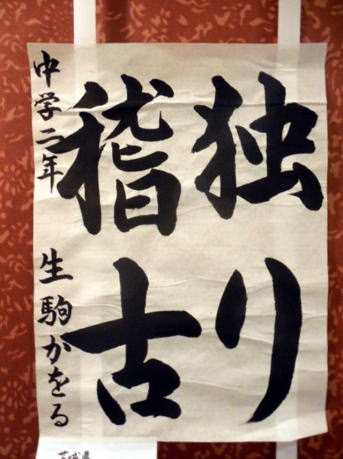 独り
稽古
中学二年 生駒かをる
茨城県